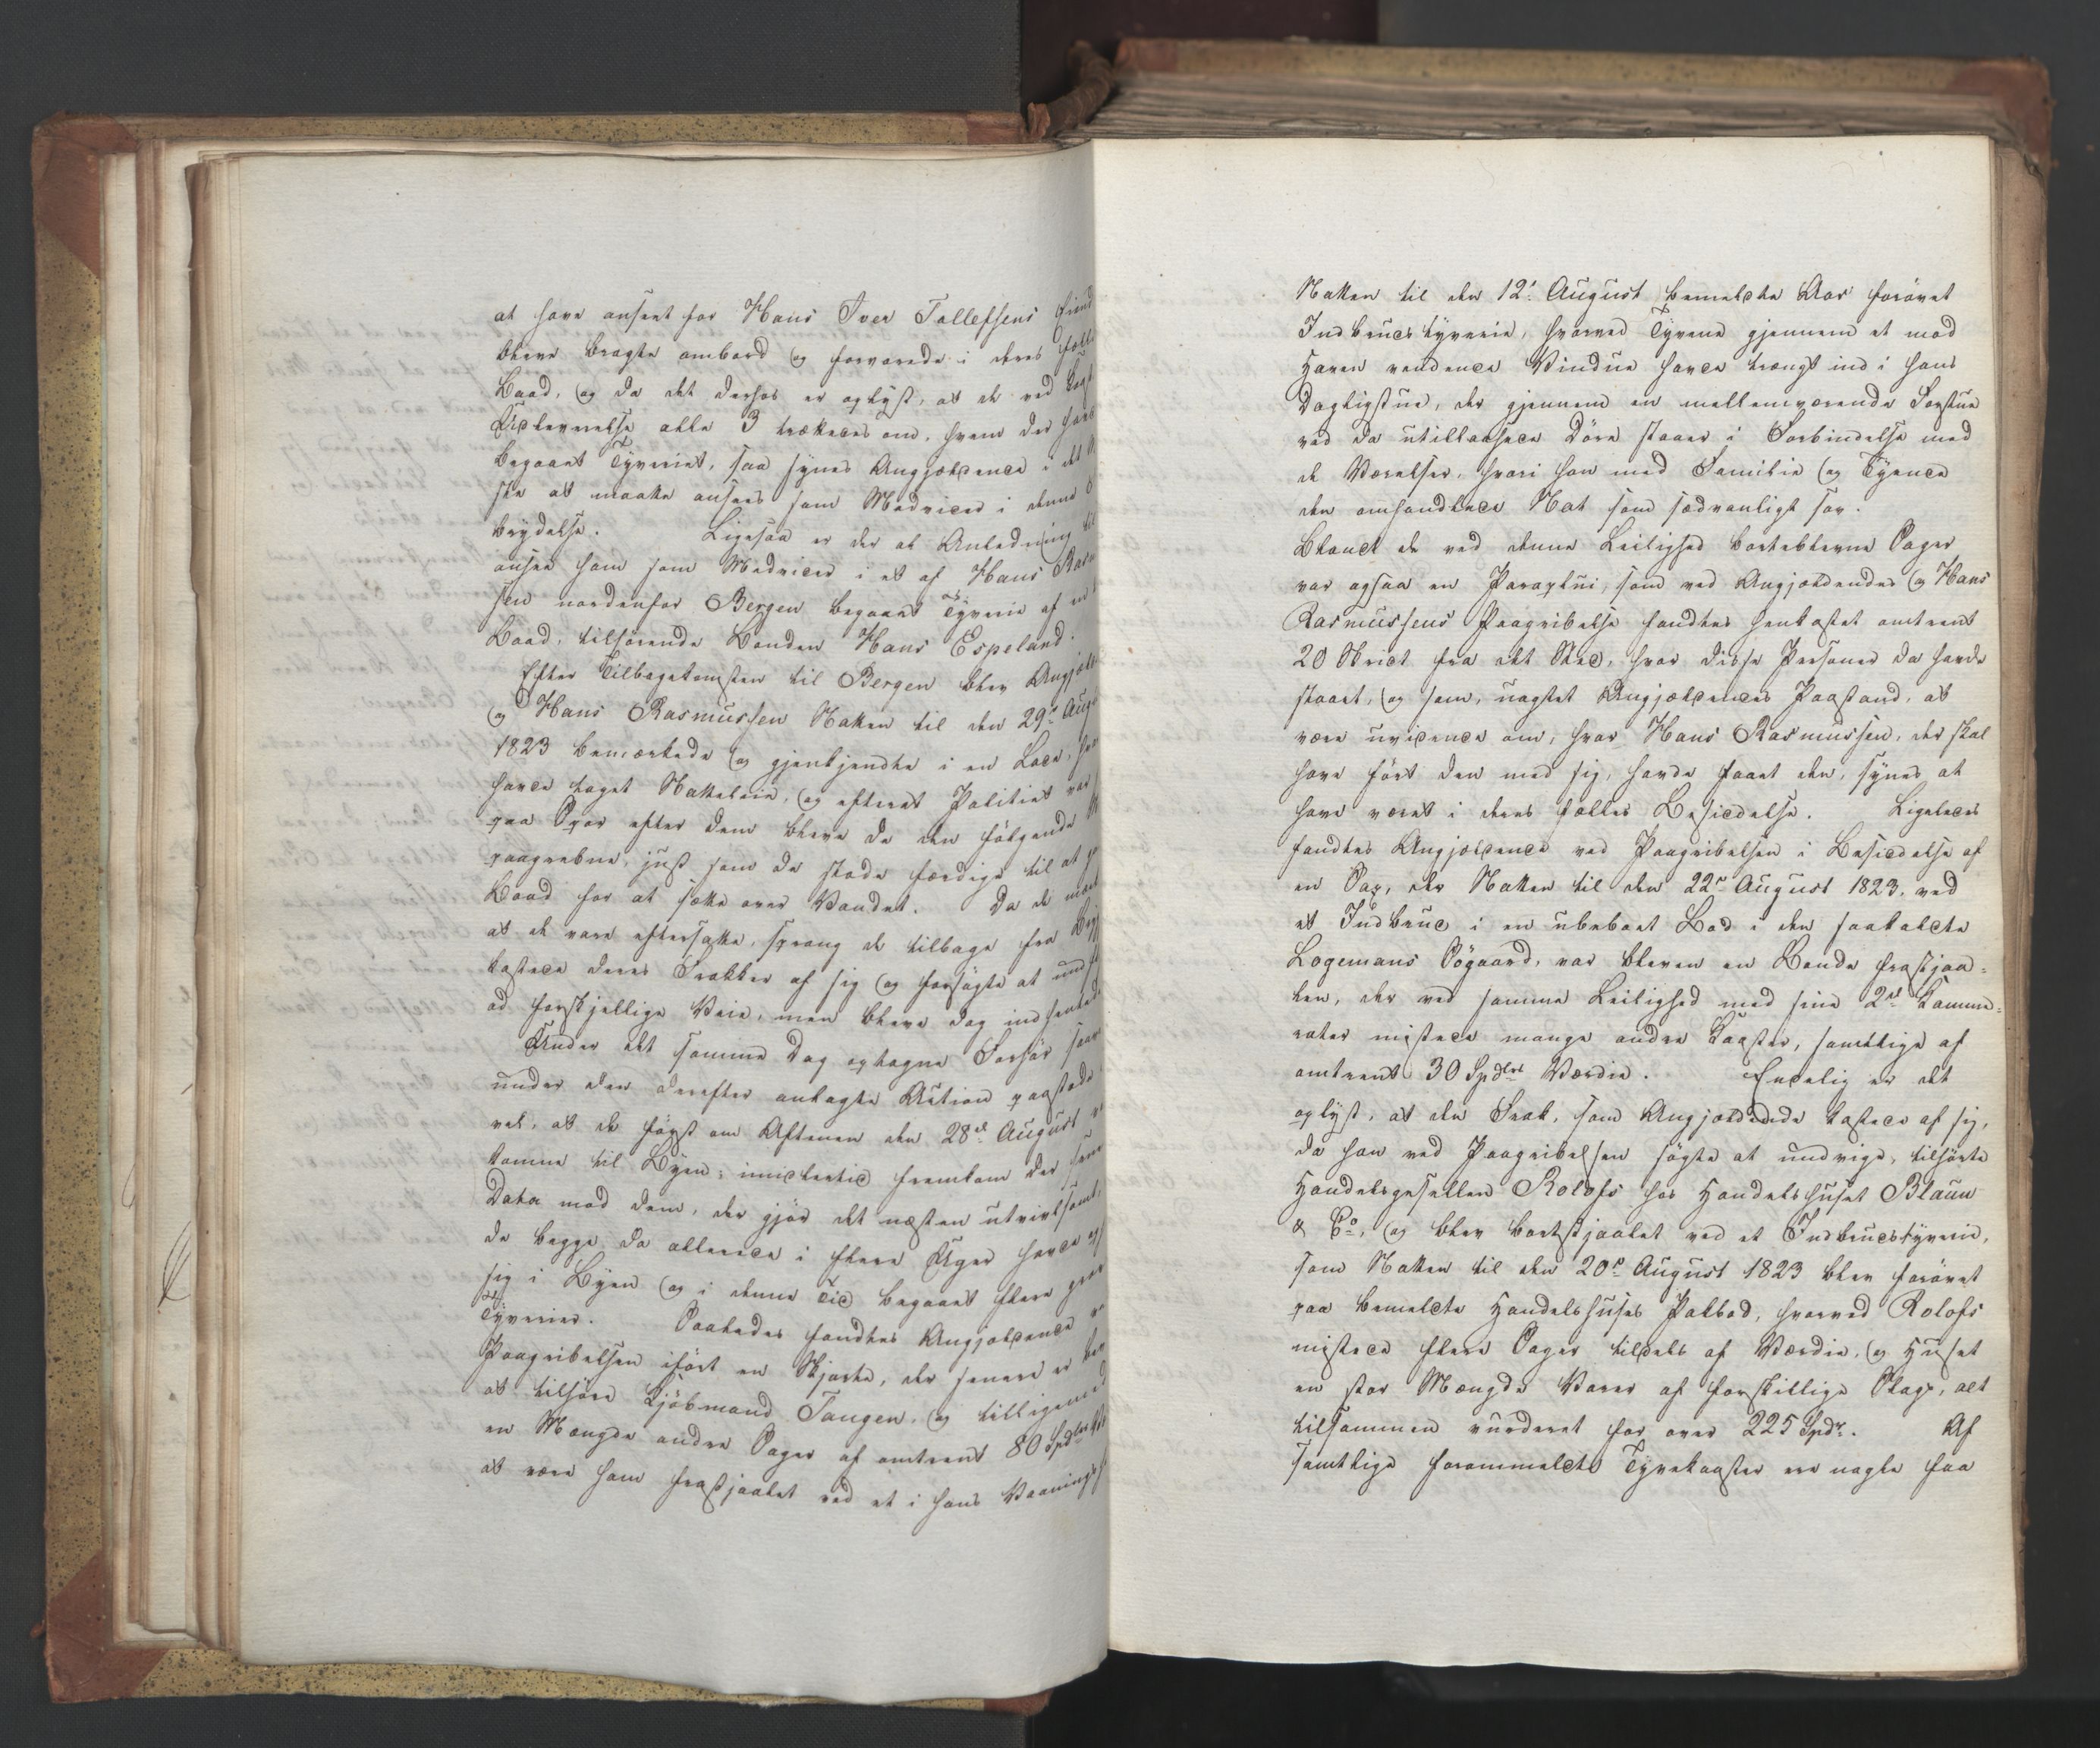 at have anseet for Hans Iver Tollefsens Eiend
bleve bragte ombord og forvarede i deres fælle
Baad, og da det derhos er oplyst, at de ved Bagt
Udleverelse alle 3 trættedes om, hvem der havd
begaaet Tyveriet, saa synes Angjældende i det
ste at maatte ansees som Medvider i denne
brydelse. Ligesaa er der al Anledning til
ansee ham som Medvider i et af Hans Rasm
sen nordenfor Bergen begaaet Tyverie af en
Baad, tilhørende Bonden Hans Espeland.
Efter Tilbagekomsten til Bergen blev Angjæld
og Hans Rasmussen Natten til den 29de Augu
1823 bemærkede og gjenkjendte i en Lade, hvor
havde taget Natteleie, og efterat Politiet var
paa Spor efter dem bleve de den følgende
paagrebne, just som de stode færdige til at
Baad for at sætte over Vandet. Da de mær
at de vare eftersatte, sprang de tilbage fra
kastede deres Frakker af sig og forsøgte at und
ad forskjellige Veie, men bleve dog indhentede
Under det samme Dag optagne Forhør saav
under den derefter anlagte Action paastode
vel, at de først om Aftenen den 28de August
komne til Byen; imidlertid fremkom der
Data mod dem, der gjør det næsten utvivlsomt,
de begge da allerede i flere Uger havde
sig i Byen og i denne Tid begaaet flere grov
Tyverier. Saaledes fandtes Angjældende
Paagribelsen iført en Skjorte, der senere er
at tilhøre Kjøbmand Tangen, og tilligemed
en Mængde andre Sager af omtrent 80 Spdlrs
at være ham frastjaalet ved et i hans Vaaningsh
Natten til den 12te August bemeldte Aar forøvet
Indbrudstyverie, hvorved Tyvene gjennem et mod
Haven vendende Vindue havde trængt ind i hans
Dagligstue, der gjennem en mellemværende Forstue
ved da utillaasede Døre staaer i Forbindelse med
de Værelser, hvori han med Familie og Tyende
den omhandlede Nat som sædvanligt sov.
Blandt de ved denne Leilighed bortblevne Sager
var ogsaa en Paraplui, som ved Angjældendes og Hans
Rasmussens Paagribelse fandtes henkastet omtrent
20 Skridt fra det Sted, hvor disse Personer da havde
staaet, og som, uagtet Angjældendes Paastand, at
være uvidende om, hvor Hans Rasmussen, der skal
have ført den med sig, havde faaet den, synes at
have været i deres fælles Besiddelse. Ligeledes
fandtes Angjældende ved Paagribelsen i Besiddelse af
en Sax, der Natten til den 22de August 1823, ved
et Indbrud i en ubeboet Bod i den saakaldte
Logemans Søgaard, var bleven en Bonde frastjaa-
len, der ved samme Leilighed med sine 2de Kamme-
rater mistede mange andre Kaaster, samtlige af
omtrent 30 Spdlrs Værdie. Endelig er det
oplyst, at den Frak, som Angjældende kastede af sig,
da han ved Paagribelsen søgte at undvige, tilhørte
Handelsgesellen Rolofs hos Handelshuset Blaun
& Co, og blev bortstjaalet ved et Indbrudstyverie,
som Natten til den 20de August 1823 blev forøvet
paa bemeldte Handelshuses Pakbod, hvorved Rolofs
mistede flere Sager tildels af Værdie, og Huset
en stor Mængde Varer af forskillige Slags, alt
tilsammen vurderet for over 225 Spdr. Af
samtlige forommeldte Tyvekaaster ere nogle faa